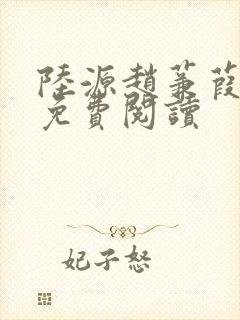 陸源趙蒹葭
免費閱讀
妃子怒